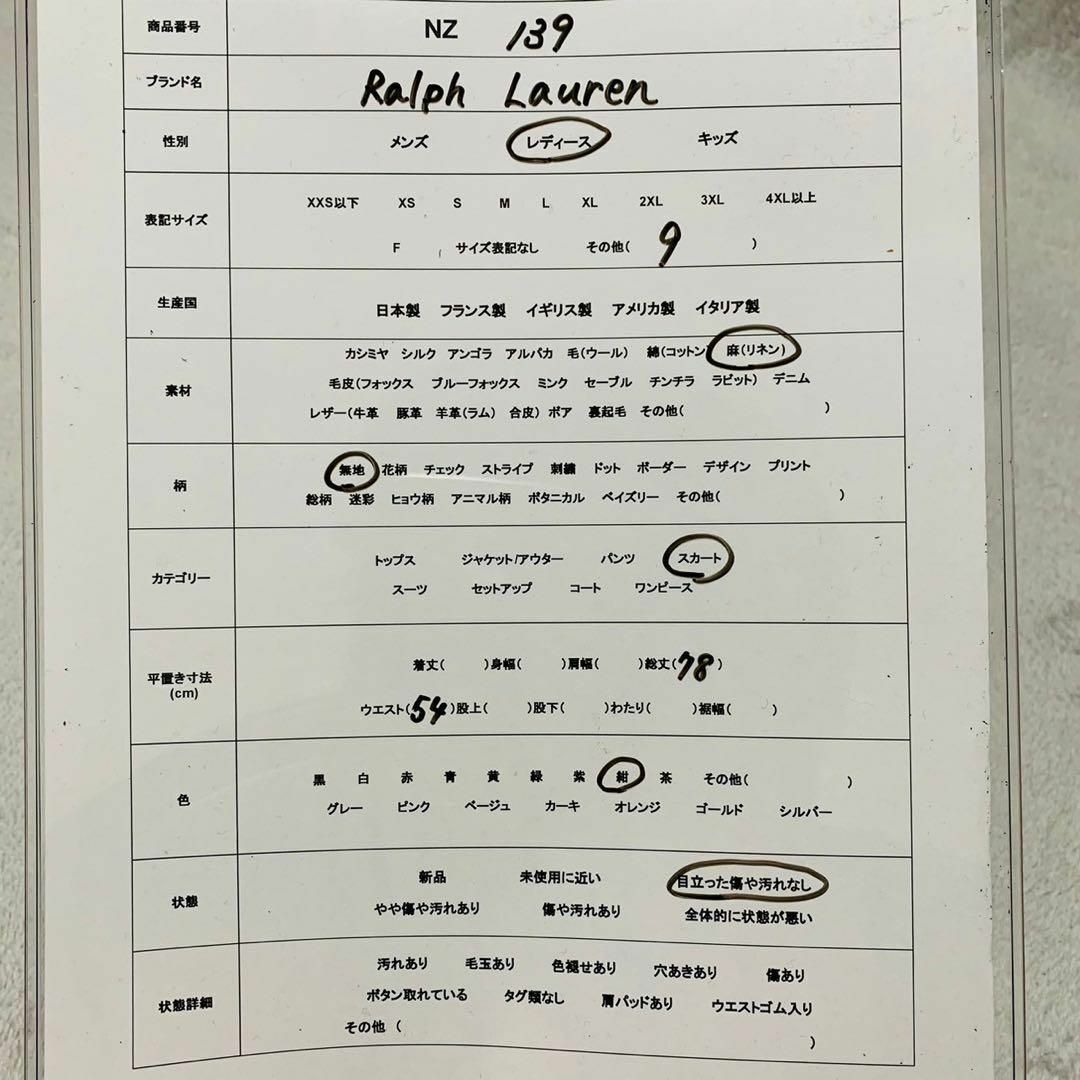 商品番号 NZ 139
ブランド名 Ralph Lauren
性別 メンズ レディース キッズ
表記サイズ XXS以下 XS S M L XL 2XL 3XL 4XL以上
F サイズ表記なし その他( 9 )
生産国 日本製 フランス製 イギリス製 アメリカ製 イタリア製
素材 カシミヤ シルク アンゴラ アルパカ 毛(ウール) 綿(コットン) 麻(リネン)
毛皮(フォックス ブルーフォックス ミンク セーブル チンチラ ラビット) デニム
レザー(牛革 豚革 羊革(ラム) 合皮) ボア 裏起毛 その他( )
柄 無地 花柄 チェック ストライプ 刺繍 ドット ボーダー デザイン プリント
総柄 迷彩 ヒョウ柄 アニマル柄 ボタニカル ペイズリー その他( )
カテゴリー トップス ジャケット/アウター パンツ スカート
スーツ セットアップ コート ワンピース
平置き寸法
(cm)
着丈( )身幅( )肩幅( )総丈(78)
ウエスト(54)股上( )股下( )わたり( )裾幅( )
色 黒 白 赤 青 黄 緑 紫 紺 茶 その他( )
グレー ピンク ベージュ カーキ オレンジ ゴールド シルバー
状態 新品 未使用に近い 目立った傷や汚れなし
やや傷や汚れあり 傷や汚れあり 全体的に状態が悪い
状態詳細 汚れあり 毛玉あり 色褪せあり 穴あきあり 傷あり
ボタン取れている タグ類なし 肩パッドあり ウエストゴム入り
その他 ( )